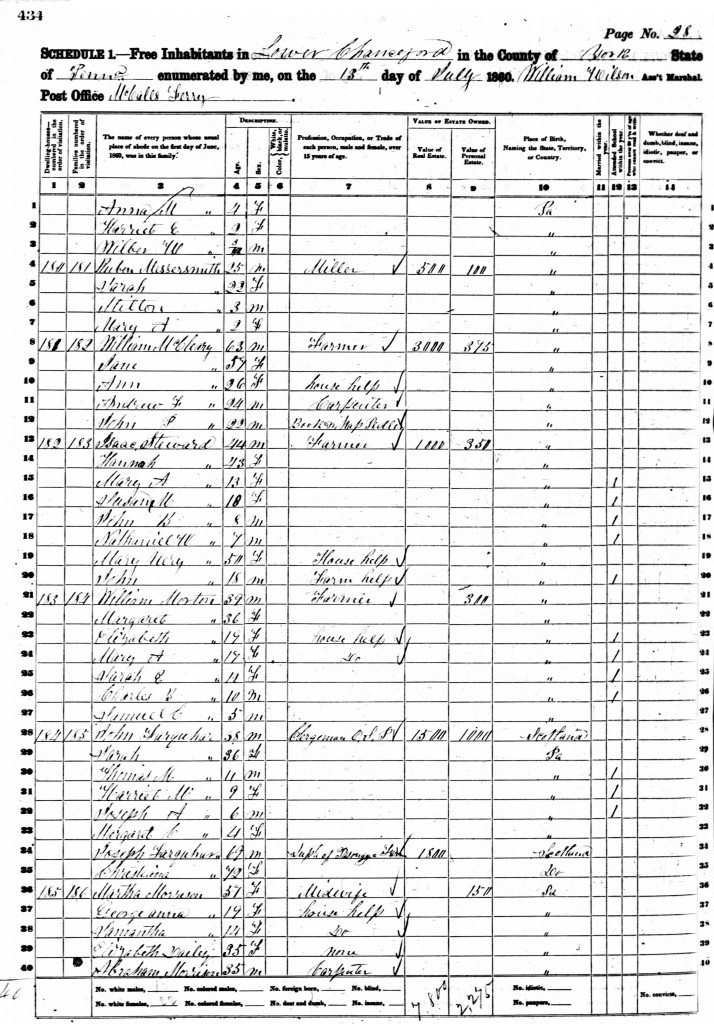 434
Page No. 28
SCHEDULE 1.—Free Inhabitants in Lower Chanceford in the County of York State
of Penna enumerated by me, on the 13th day of July 1860. William Wilson Ass't Marshal.
Post Office McCalls Ferry
Dwelling-houses—numbered in the order of visitation.
Families numbered in the order of visitation.
The name of every person whose usual place of abode on the first day of June, 1860, was in this family.
DESCRIPTION.
Age.
Sex.
Color, White, black, or mulatto.
Profession, Occupation, or Trade of each person, male and female, over 15 years of age.
VALUE OF ESTATE OWNED.
Value of Real Estate.
Value of Personal Estate.
Place of Birth, Naming the State, Territory, or Country.
Married within the year.
Attended School within the year.
Whether deaf and dumb, blind, insane, idiotic, pauper, or convict.
1 2 3 4 5 6 7 8 9 10 11 12 13 14
1 Anna M " 4 F Pa 1
2 Harriet E " 2 F " 2
3 Wilber W " m " 3
4 180 181 Ruben Messersmith 25 m Miller 500 100 " 4
5 Sarah " 22 F " 5
6 Milton " 3 m " 6
7 Mary A " 2 F " 7
8 181 182 William McCleary 63 m Farmer 3000 375 " 8
9 Jane " 57 F " 9
10 Ann " 26 F house help " 10
11 Andrew F " 24 m Carpenter " 11
12 John " 22 m " 12
13 182 183 Isaac Steward 44 m Farmer 1000 350 " 13
14 Hannah " 43 F " 14
15 Mary A " 13 F " 1 15
16 Susan M " 10 F " 1 16
17 John " 8 m " 1 17
18 Nathaniel W " 7 m " 1 18
19 Mary 50 F House help " 19
20 John " 18 m Farm help " 1 20
21 183 184 William Morton 39 m Farmer 300 " 21
22 Margaret " 36 F " 22
23 Elizabeth " 19 F house help " 1 23
24 Mary A " 17 F Do " 1 24
25 Sarah E " 11 F " 1 25
26 Charles " 10 m " 1 26
27 Samuel C " 5 m " 27
28 184 185 John Farquhar 38 m Clergeman O.S.P 1500 1000 Scotland 28
29 Sarah " 36 F Pa 29
30 Thomas M " 11 m " 1 30
31 Harriet M " 9 F " 1 31
32 Joseph A " 6 m " 1 32
33 Margaret " 4 F " 33
34 Joseph Farquhar 69 m 1800 Scotland 34
35 Christina " 72 F Do 35
36 185 186 Martha Morrison 57 F Midwife 150 Pa 36
37 George anna " 19 F house help " 37
38 Samantha " 14 F Do " 38
39 Elizabeth Dailey 35 F none " 39
40 Abraham Morrison 35 m Carpenter " 40
40
No. white males, No. colored males, No. foreign born, No. blind, 7,800 2,275 No. idiotic, No. convicts,
No. white females, No. colored females, No. deaf and dumb, No. insane, No. paupers,